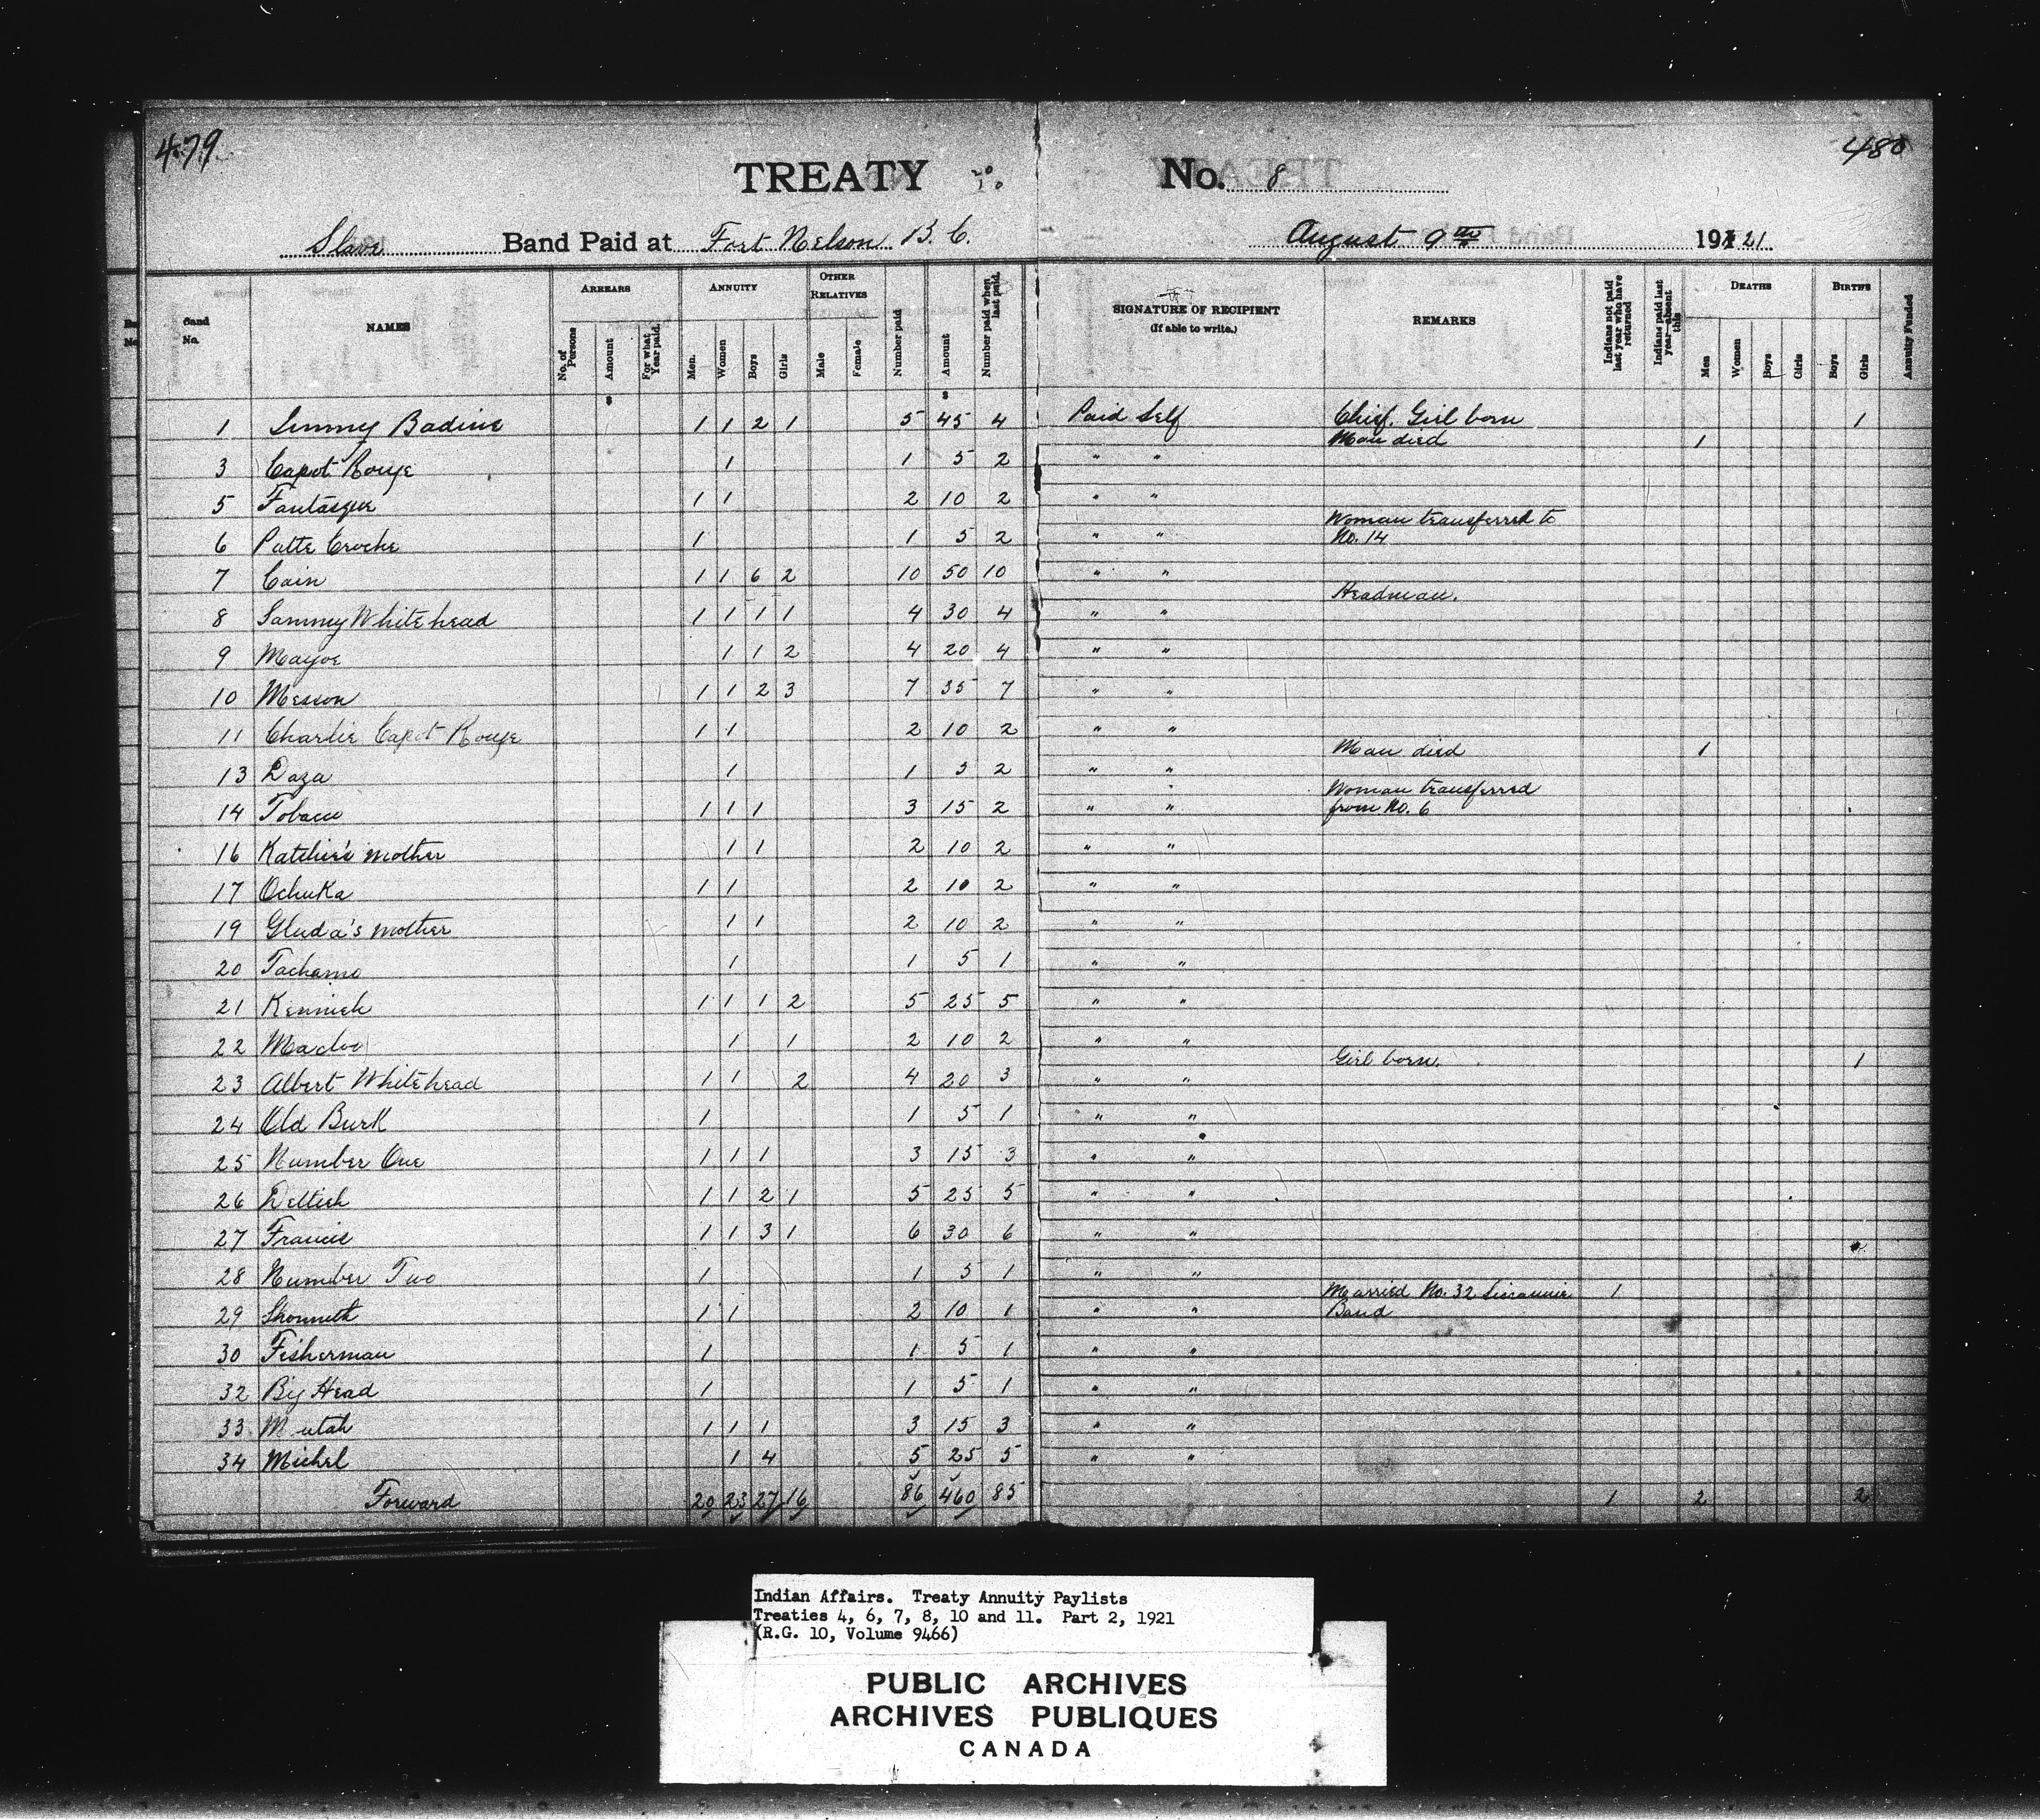 479
480
TREATY No. 8
Slave Band Paid at Fort Nelson B.C. August 9th 1921
Band No. NAMES ARREARS ANNUITY OTHER RELATIVES Number paid Amount Number paid when last paid. SIGNATURE OF RECIPIENT (If able to write.) REMARKS Indians not paid last year who have returned Indians paid last year absent this DEATHS BIRTHS Annuity Funded
No. of Persons Amount For what Year paid. Men. Women Boys Girls Male Female Men Women Boys Girls Boys Girls
$ $
1 Jimmy Badine 1 1 2 1 5 45 4 Paid Self Chief. Girl born 1
Man died 1
3 Capot Rouge 1 1 5 2 " "
5 Fantasque 1 1 2 10 2 " "
Woman transferred to
6 Patte Croche 1 1 5 2 " " No. 14
7 Cain 1 1 6 2 10 50 10 " "
Headman.
8 Sammy Whitehead 1 1 1 1 4 30 4 " "
9 Mayoe 1 1 2 4 20 4 " "
10 Messon 1 1 2 3 7 35 7 " "
11 Charlie Capot Rouge 1 1 2 10 2 " "
Man died 1
13 Daza 1 1 5 2 " "
Woman transferred
14 Tobacco 1 1 1 3 15 2 " " from No. 6
16 Katchie's Mother 1 1 2 10 2 " "
17 Ochuka 1 1 2 10 2 " "
19 Gluda's Mother 1 1 2 10 2 " "
20 Tachamo 1 1 5 1 " "
21 Kennieh 1 1 1 2 5 25 5 " "
22 Macloo 1 1 2 10 2 " "
Girl born. 1
23 Albert Whitehead 1 1 2 4 20 3 " "
24 Old Burk 1 1 5 1 " "
25 Number One 1 1 1 3 15 3 " "
26 Dettieh 1 1 2 1 5 25 5 " "
27 Francis 1 1 3 1 6 30 6 " "
28 Number Two 1 1 5 1 " "
Married No. 32 Sicannie 1
29 Shonneth 1 1 2 10 1 " " Band
30 Fisherman 1 1 5 1 " "
32 Big Head 1 1 5 1 " "
33 M utah 1 1 1 3 15 3 " "
34 Michel 1 4 5 25 5 " "
Forward 20 23 27 16 86 460 85 1 2 2
Indian Affairs. Treaty Annuity Paylists
Treaties 4, 6, 7, 8, 10 and 11. Part 2, 1921
(R.G. 10, Volume 9466)
PUBLIC ARCHIVES
ARCHIVES PUBLIQUES
CANADA